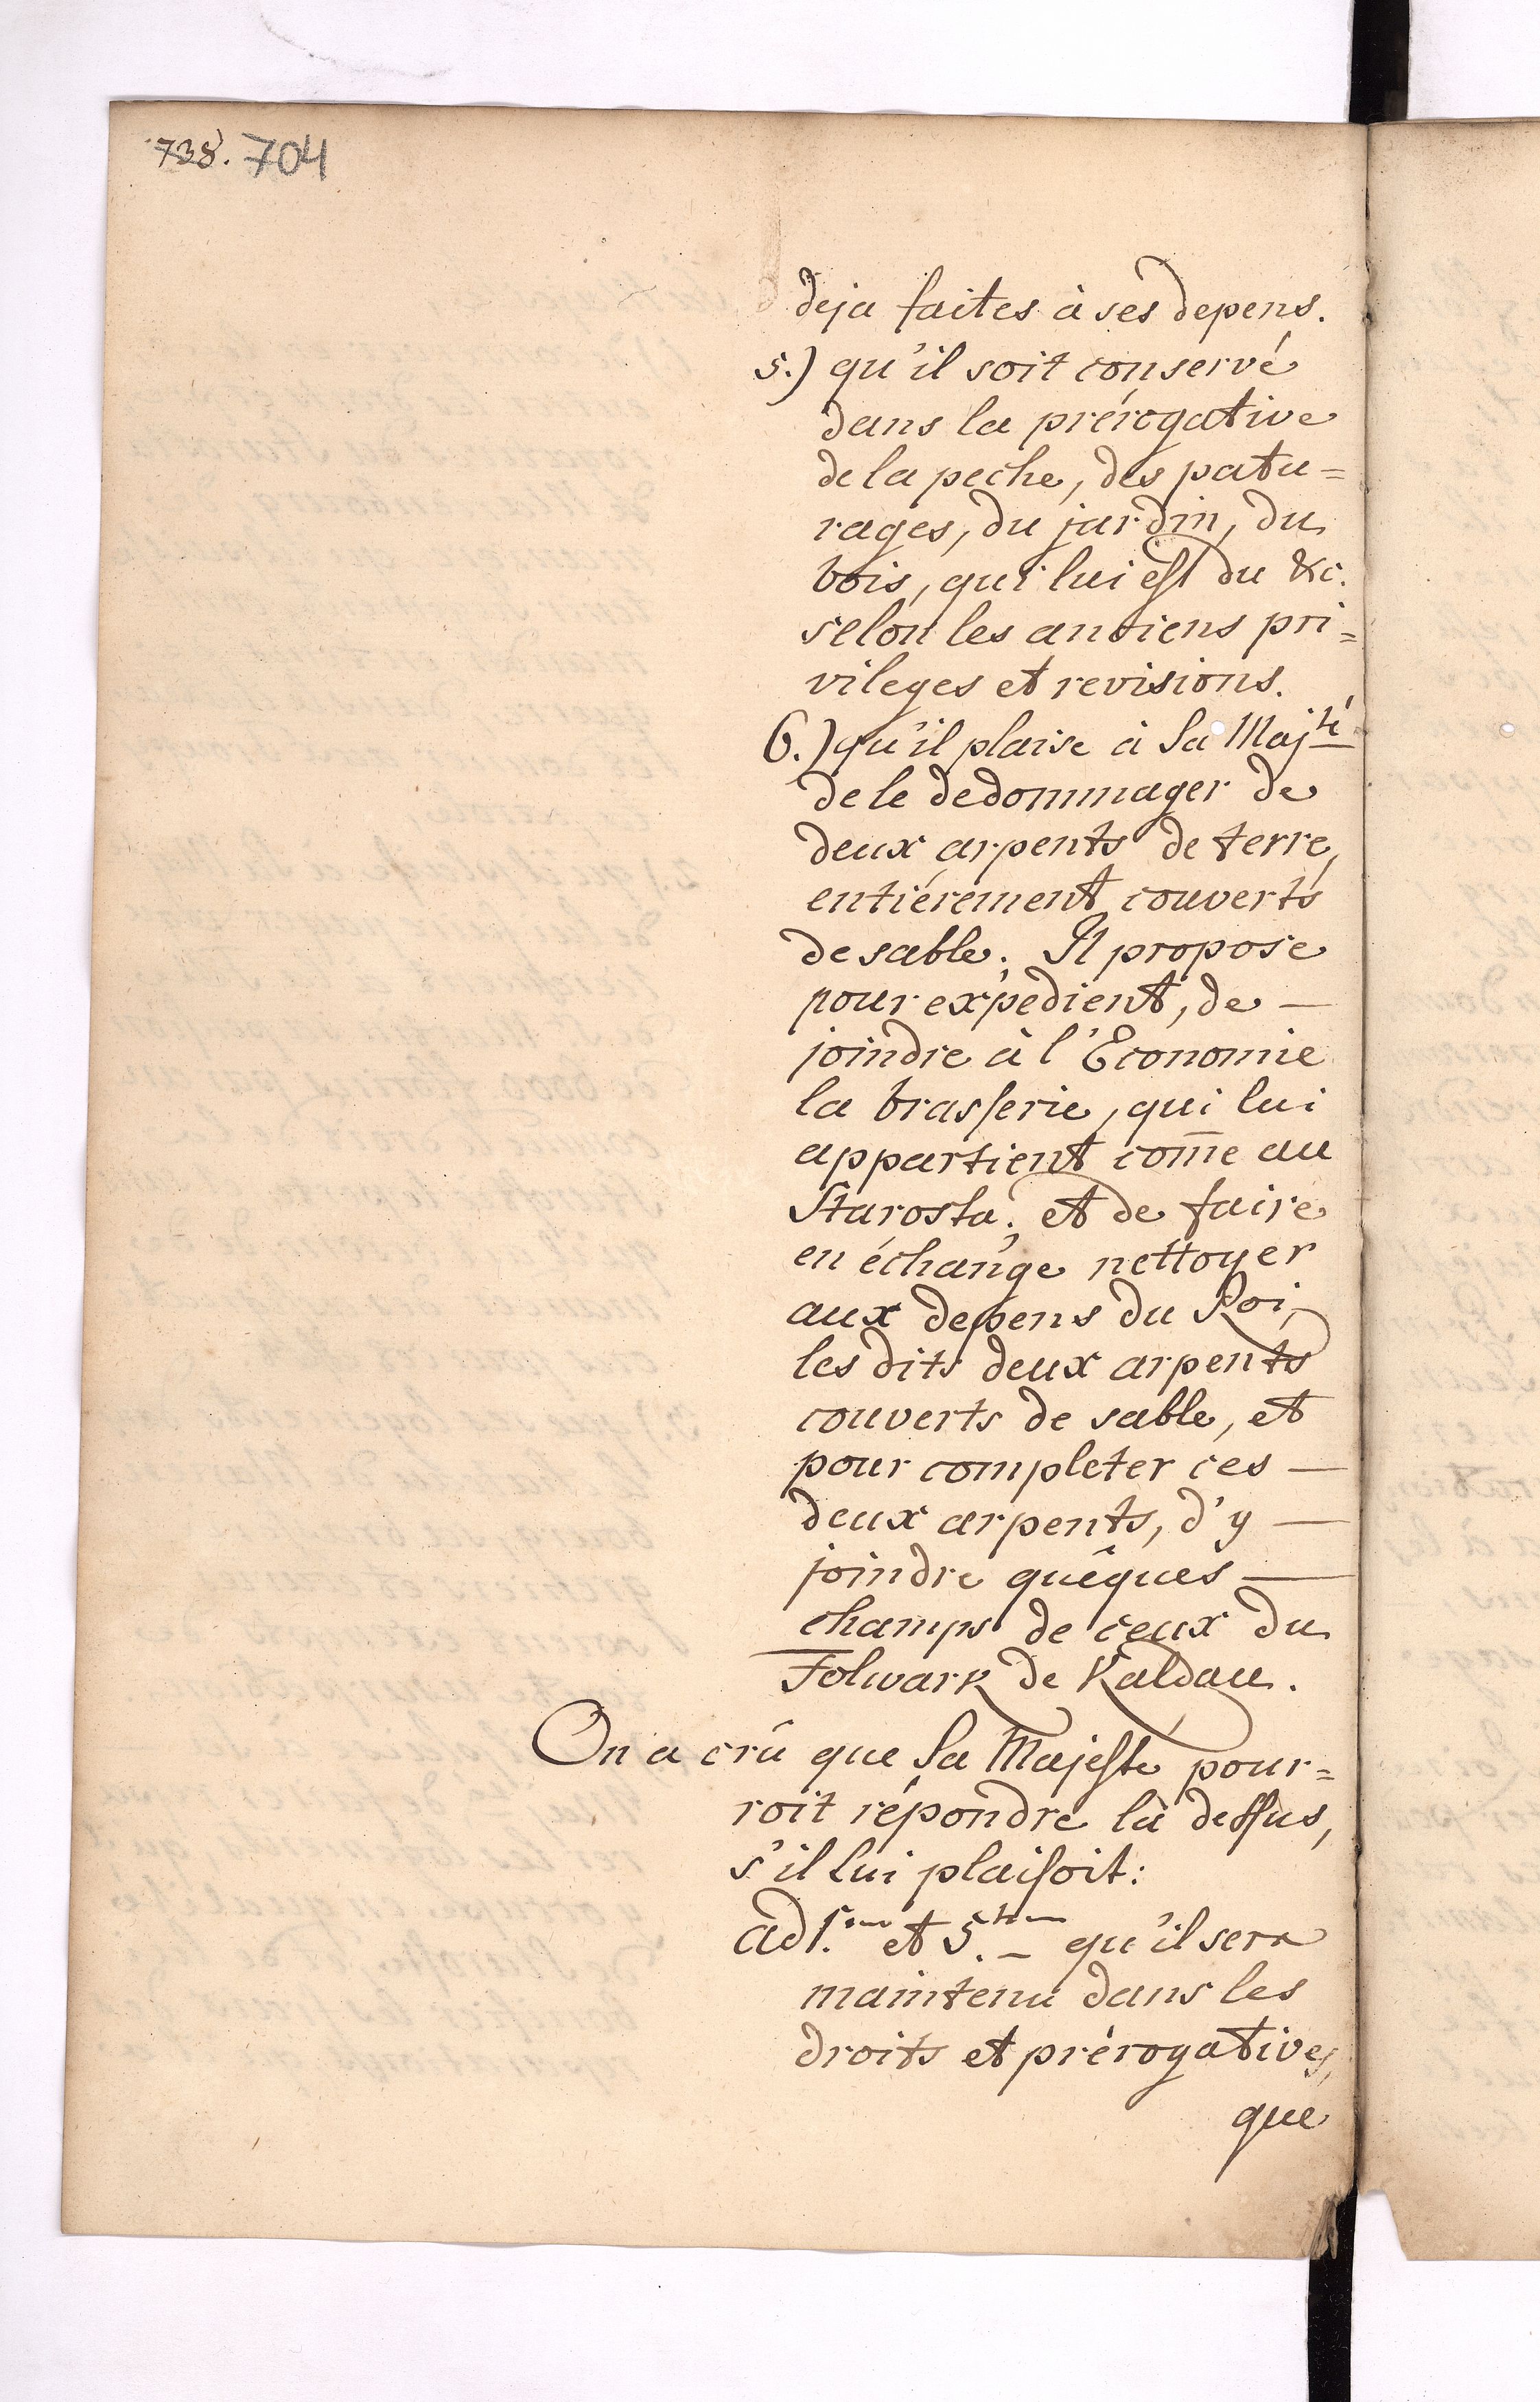 738. 704
deja faites à ses depens.
5.) qu'il soit conservé
dans la prérogative
de la peche, des patu=
rages, du jardin, du
bois, qui lui est du &c.
selon les anciens pri=
vileges et revisions.
6.) qu'il plaise à Sa Maj.té
de le dedommager de
deux arpents de terre,
entiérement couverts
de sable. Il propose
pour expédient, de —
joindre à l'Economie
la brasserie, qui lui
appartient com̅e au
Starosta; et de faire
en échange nettoyer
aux depens du Roi,
les dits deux arpents
couverts de sable, et
pour completer ces —
deux arpents, d'y —
joindre quêques —
champs de ceux du
Folwark de Kaldau.
On a crû que Sa Majesté pour=
roit répondre là dessus,
s'il lui plaisoit:
ad 1.um et 5.tum qu'il sera
maintenu dans les
droits et prérogatives,
que